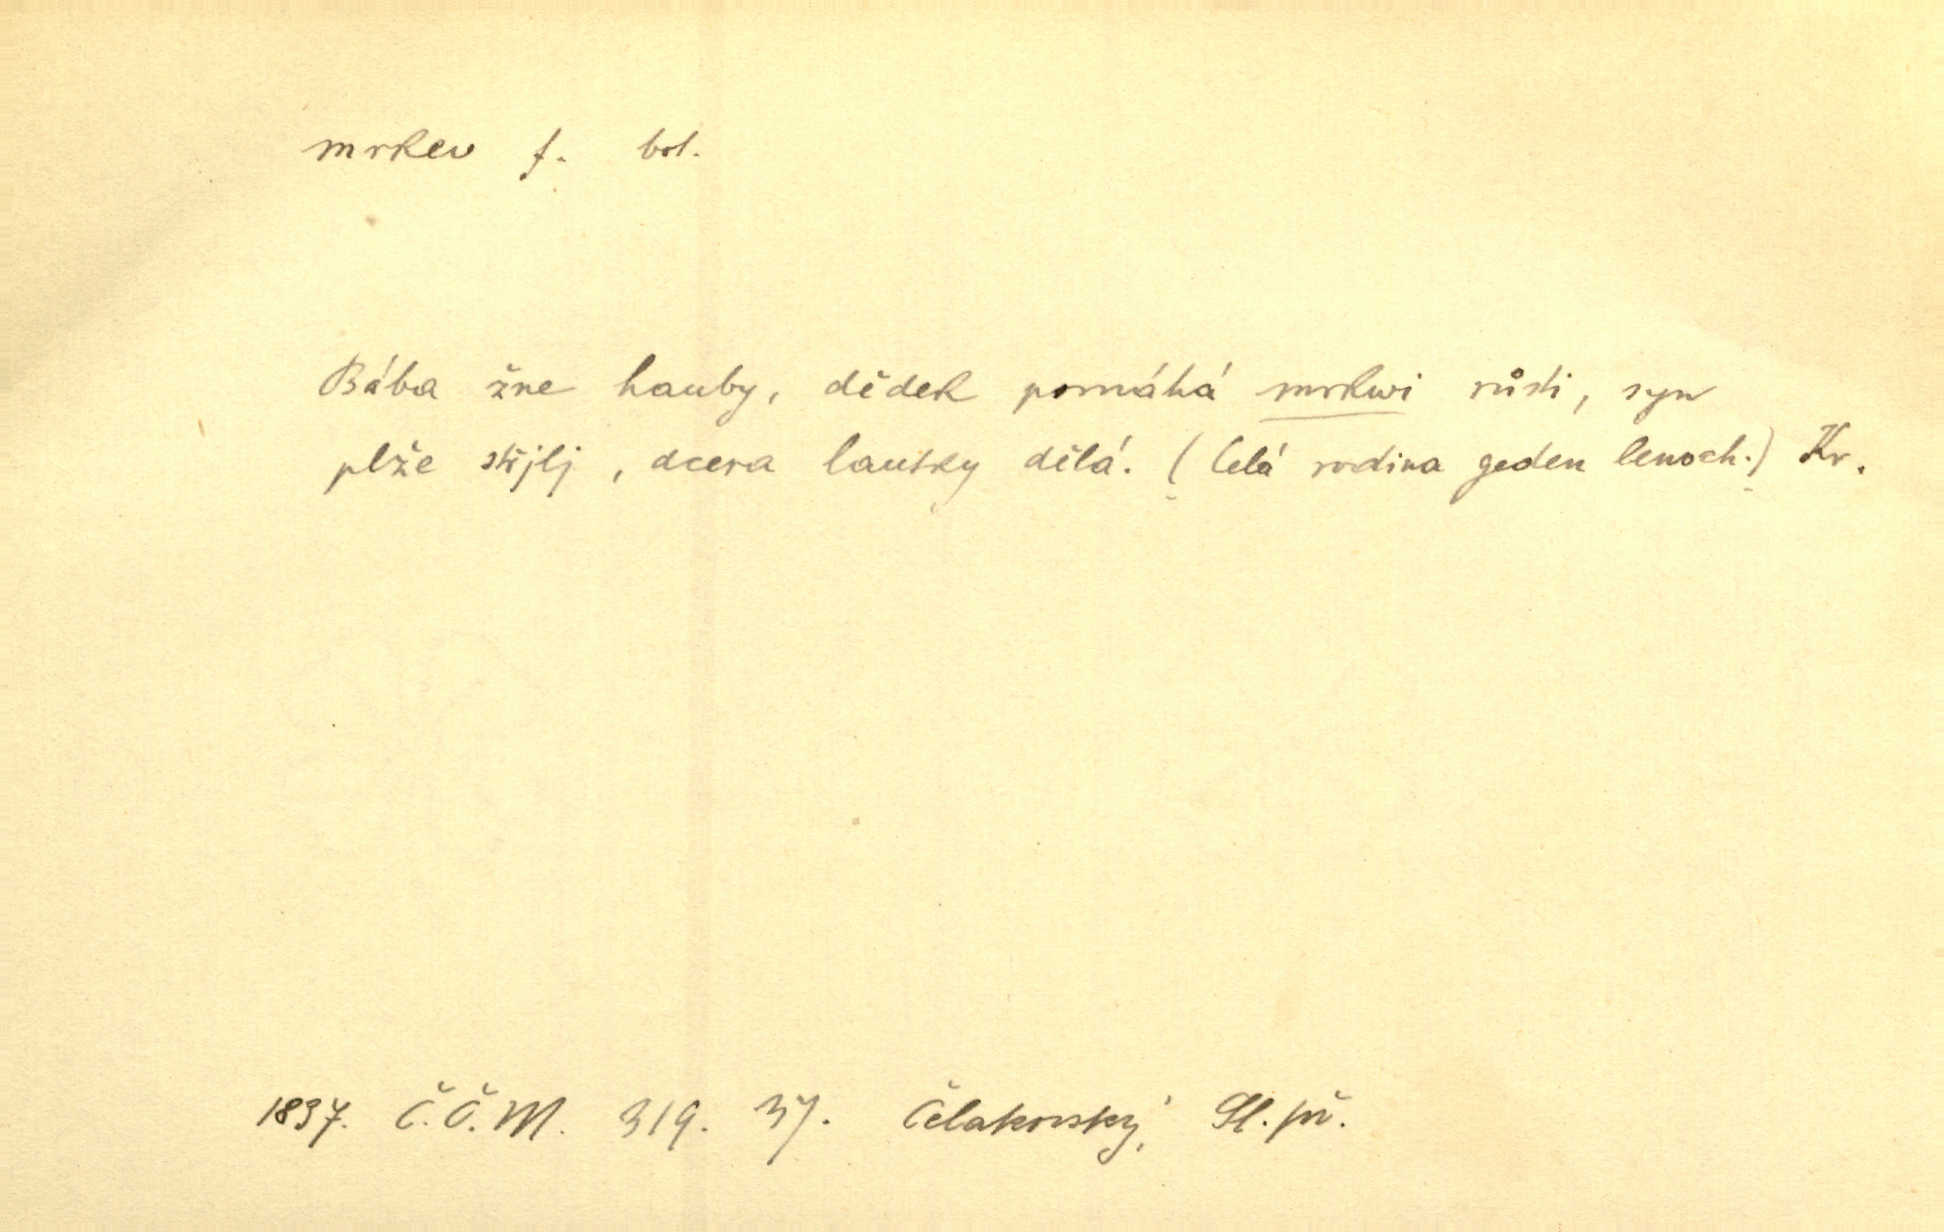 mrkev f. bot.
Bába žne hauby, dědek pomáhá mrkwi růsti, syn
plže střjlj, dcera lautky dělá. (Celá rodina geden lenoch.) Kr.
1837. Č.Č.M. 319. 37. Čelakovský, Sl. př.